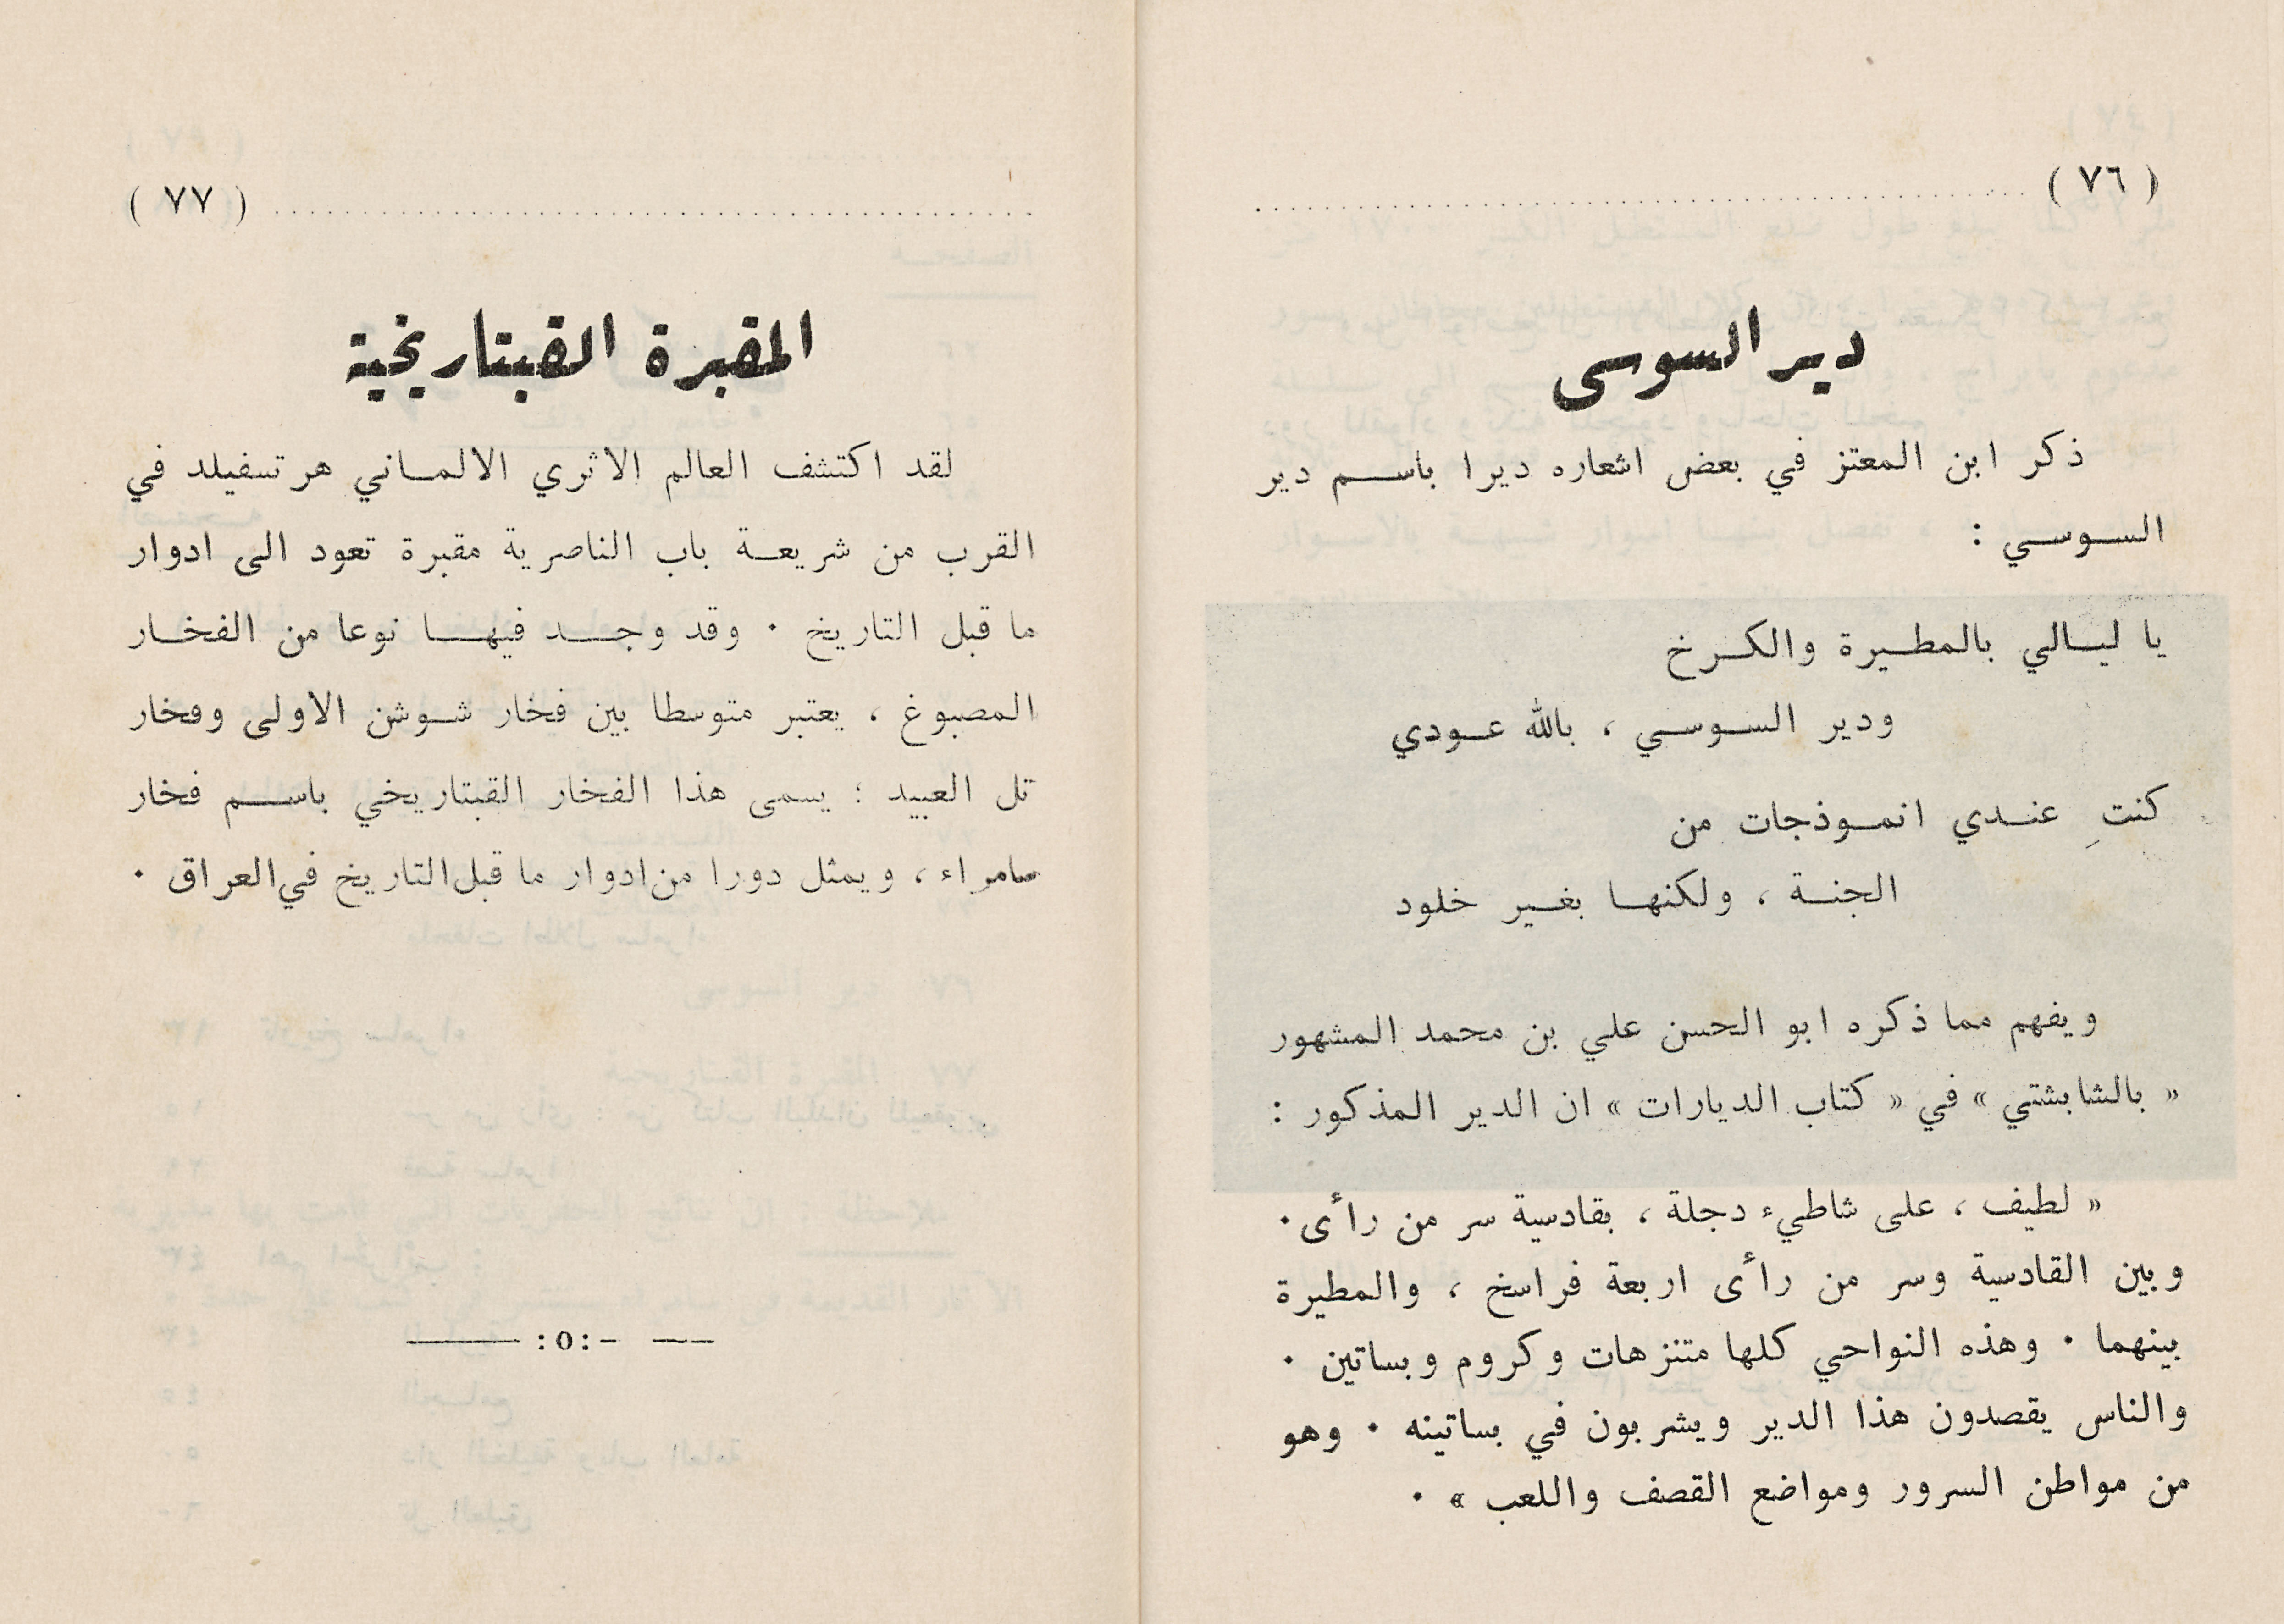 ( ٧٦ )
دير السوسى
ذكر ابن المعتز في بعض اشعاره ديرا باسم دير
السوسي :
يا ليالي بالمطيرة والكرخ
ودير السوسي ، بالله عودي
كنتِ عندي انموذجات من
الجنة ، ولكنها بغير خلود
ويفهم مما ذكره ابو الحسن علي بن محمد المشهور
« بالشابشتي » في « كتاب الديارات » ان الدير المذكور :
« لطيف ، على شاطيء دجلة ، بقادسية سر من رأى ٠
وبين القادسية وسر من رأى اربعة فراسخ ، والمطيرة
بينهما ٠ وهذه النواحي كلها متنزهات وكروم وبساتين ٠
والناس يقصدون هذا الدير ويشربون في بساتينه ٠ وهو
من مواطن السرور ومواضع القصف واللعب » ٠
( ٧٧ )
المقبرة القبتاريخية
لقد اكتشف العالم الاثري الالماني هرتسفيلد في
القرب من شريعة باب الناصرية مقبرة تعود الى ادوار
ما قبل التاريخ ٠ وقد وجد فيها نوعا من الفخار
المصبوغ ، يعتبر متوسطا بين فخار شوشن الاولى وفخار
تل العبيد ؛ يسمى هذا الفخار القبتاريخي باسم فخار
سامراء ، ويمثل دورا من ادوار ما قبل التاريخ في العراق ٠